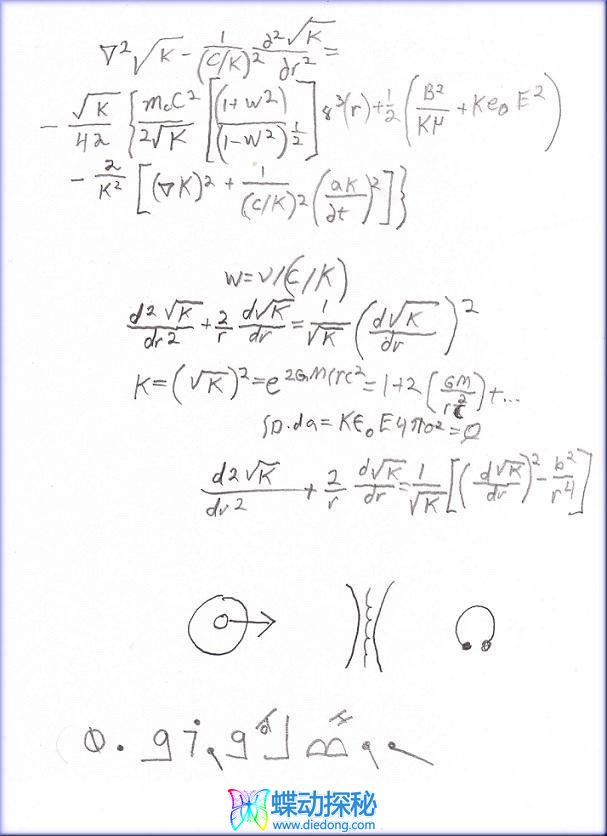 ∇²√K - 1/(C/K)² ∂²√K/∂r² =
- √K/4λ { m₀C²/2√K [ (1+W²)/(1-W²)½ ] 8³(r) + 1/2 ( B²/Kμ + Ke₀E² )
- 2/K² [ (∇K)² + 1/(C/K)² (∂K/∂t)² ] }
W = V/(C/K)
d2√K/dr2 + 2/r d√K/dr = 1/√K (d√K/dr)²
K = (√K)² = e^2GM/rc² = 1+2 (GM/rc²) + ...
∫D.da = Kε₀E4πo² = Q
d2√K/dr2 + 2/r d√K/dr = 1/√K [ (d√K/dr)² - b²/r⁴ ]
蝶动探秘
www.diedong.com